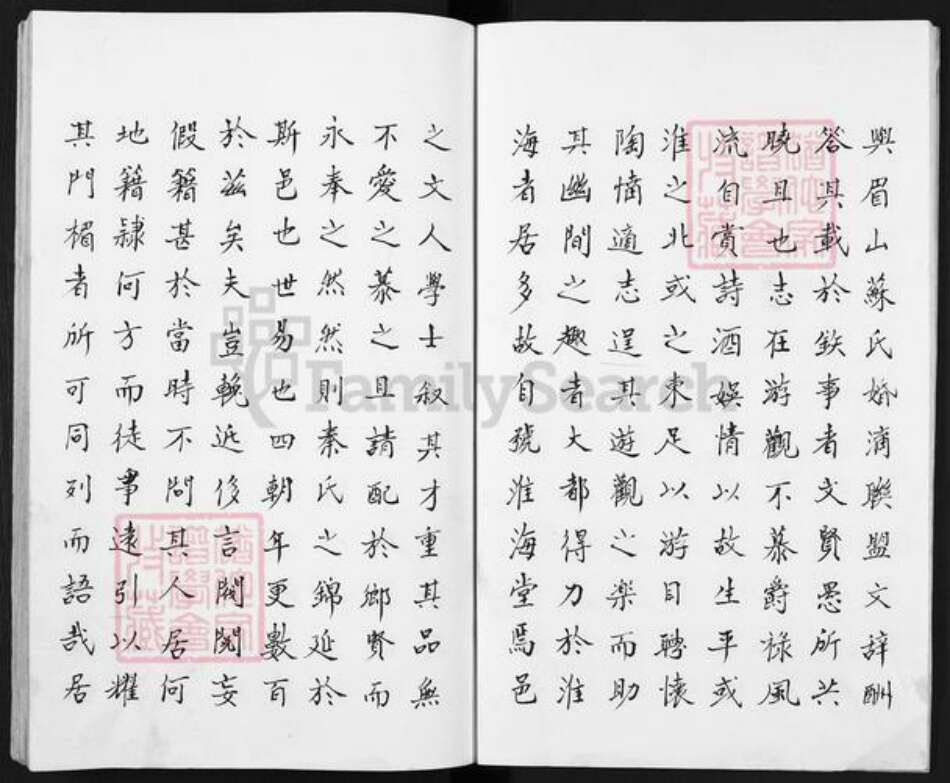 與眉山蘇氏婚滴聯盟文辞酬
答具載於鈇事者文賢愚所共
曉且也志在游觀不慕爵祿風
流自賞詩酒娛情以故生平或
淮之北或之東足以游目轉懷
陶情適志逞其遊觀之楽而助
其幽間之趣者大都得力於淮
海者居多故自號淮海堂焉邑
之文人學士叙其才重其品無
不愛之慕之且請配於鄉賢而
永奉之然然則秦氏之錦延於
斯邑也世易也四朝年更數百
於茲矣夫豈輓近侈言閥閱妄
假籍甚於當時不问其人居何
地籍隸何方而徒事遠引以耀
其門楣者所可同列而語哉居
FamilySearch